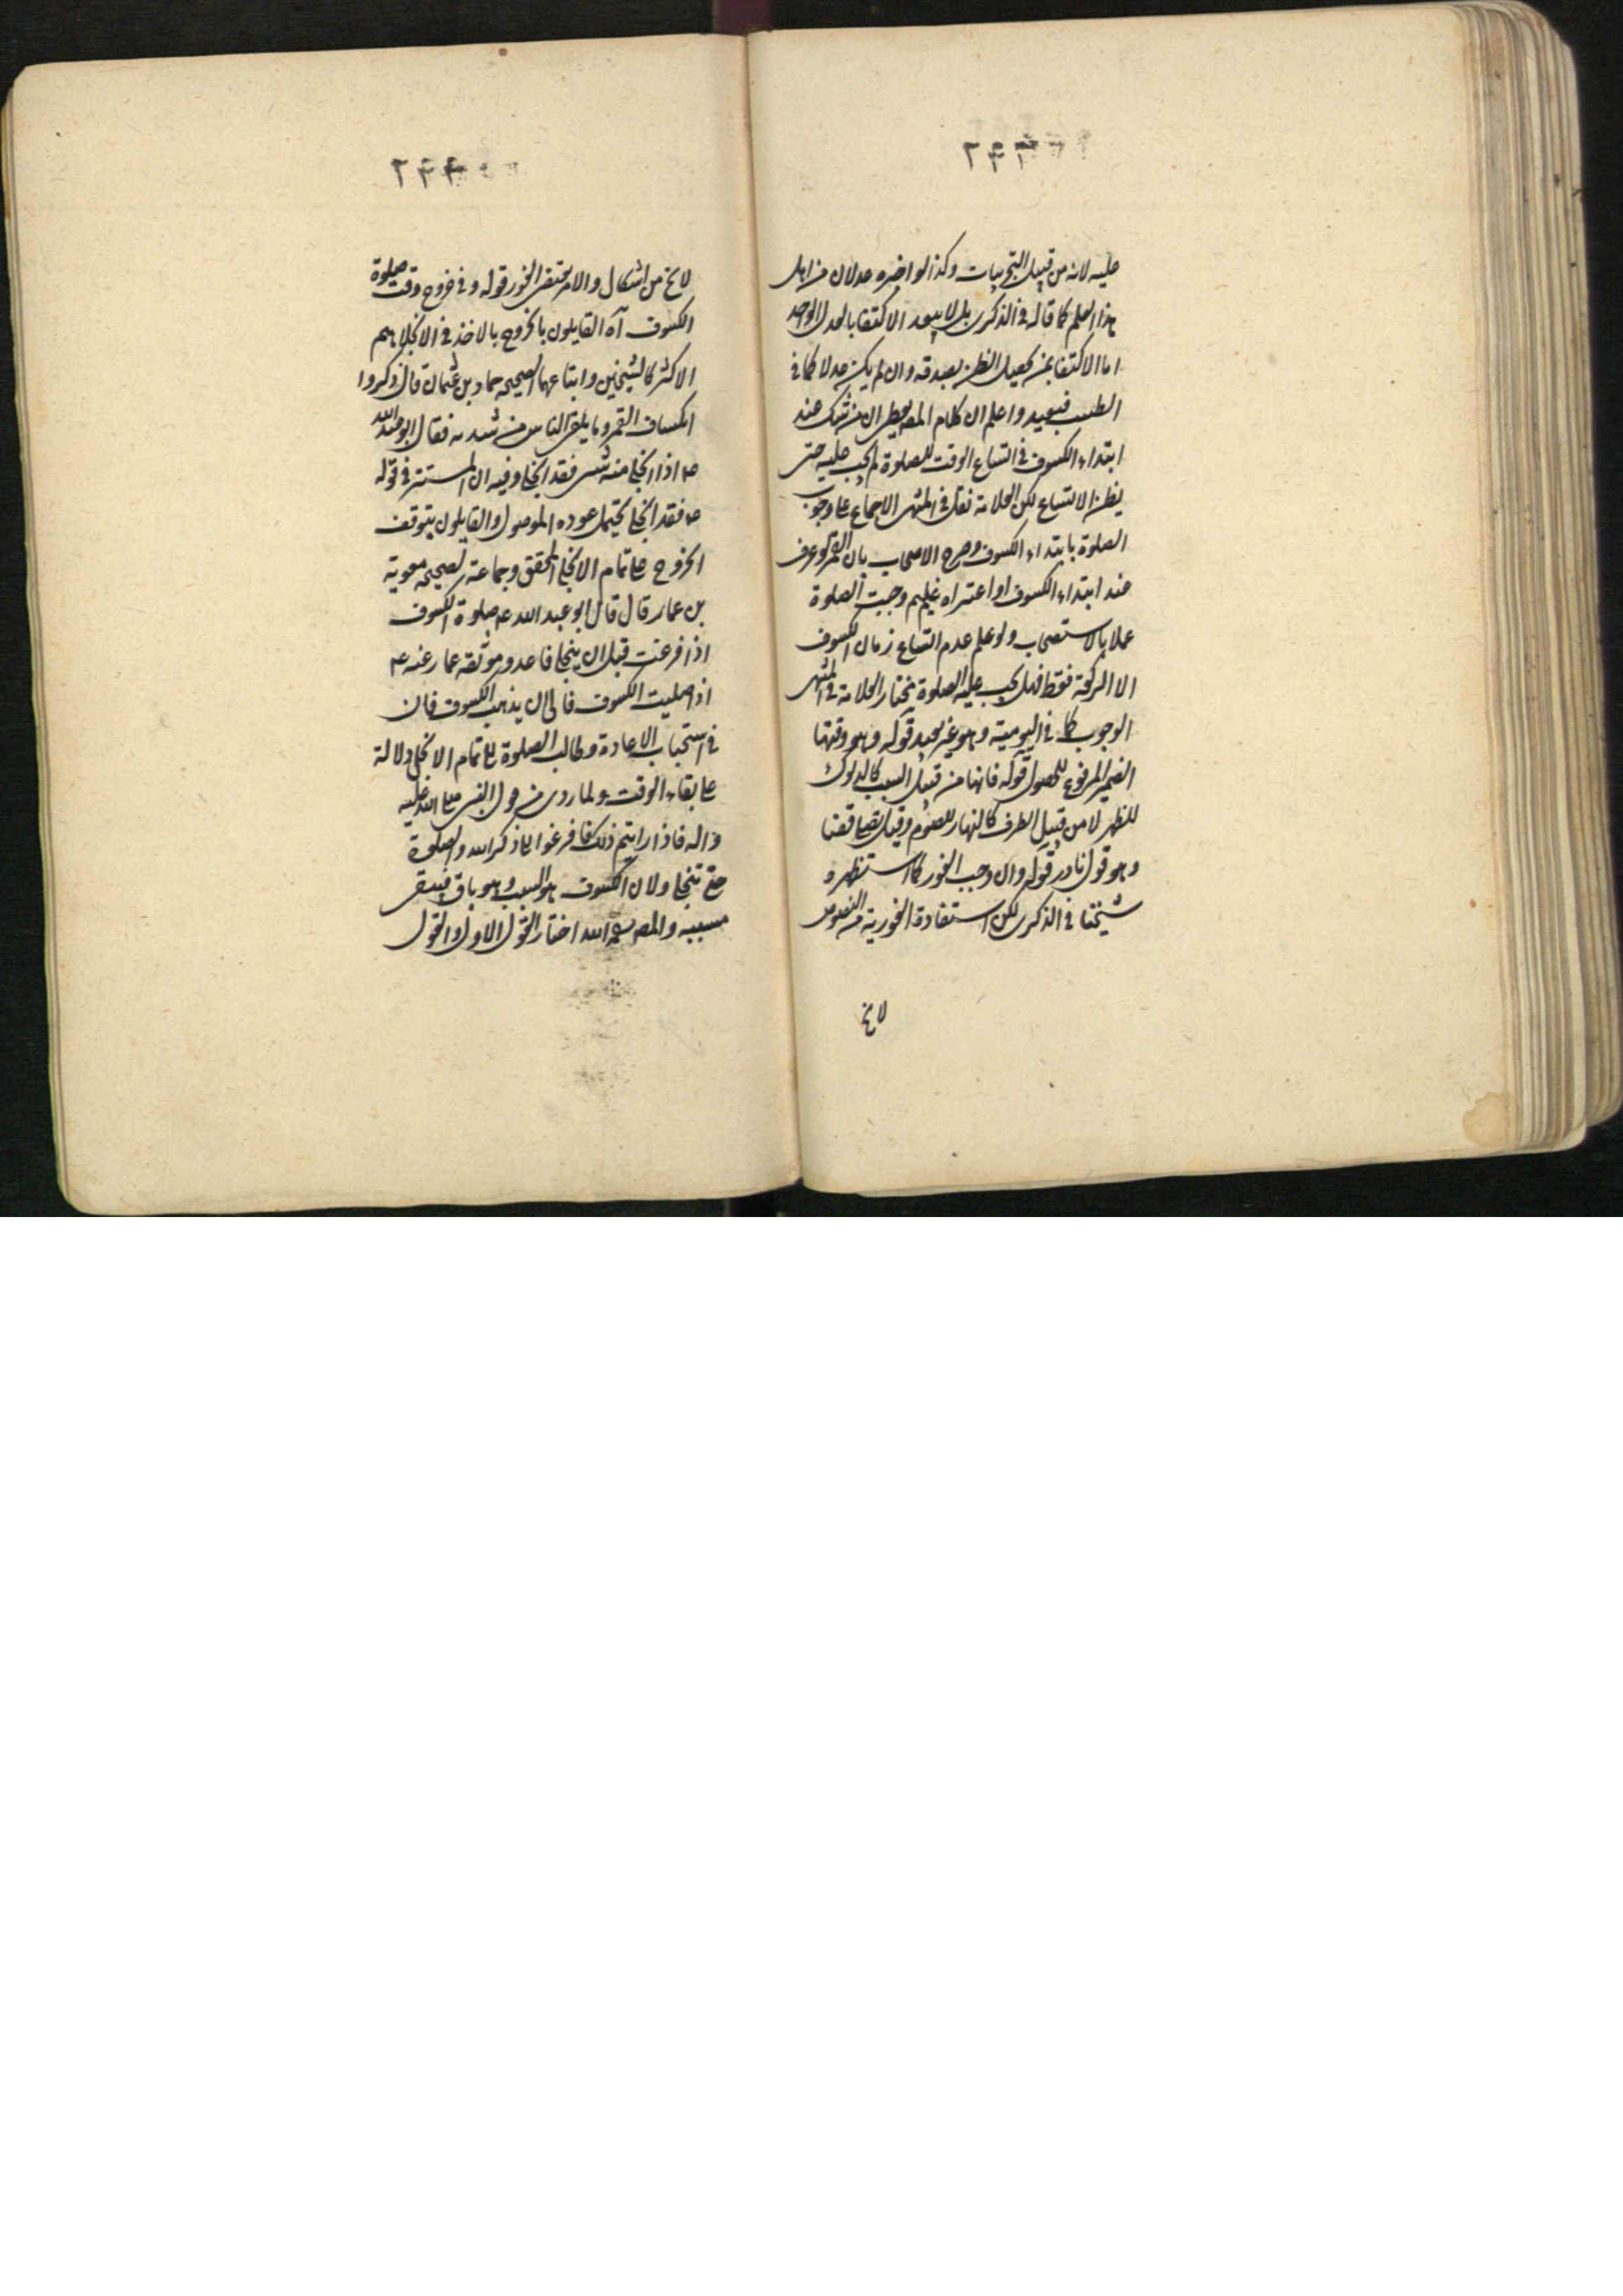 عليه لانه من قبيل التجربيات وكذا لو اخبره عدلان من اهل
هذا العلم كما قاله في الذكرى بل لا يبعد الاكتفا بالعدل الواحد
اما الاكتفا بمن يحصل الظن بصدقه وان لم يكن عدلا كما في
الطبيب فبعيد واعلم ان كلام المص يعطي ان من شك عند
ابتداء الكسوف في اتساع الوقت للصلوة لم يجب عليه حتى
يظن الاتساع لكن العلامة نقل في المنتهى الاجماع على وجوب
الصلوة بابتداء الكسوف وصرح الاصحاب بان القمر لو عرف
عند ابتداء الكسوف او اعتراه غيم وجبت الصلوة
عملا بالاستصحاب ولو علم عدم اتساع زمان الكسوف
الا الركعة فقط فهل يجب عليه الصلوة مختار العلامة في المنتهى
الوجوب كما في اليومية وهو غير بعيد قوله وهو وقتها
الضمير المرفوع للحصول قوله فانها من قبيل السبب كالدلوك
للظهر لا من قبيل الظرف كالنهار للصوم وقيل
وهو قول نادر قوله وان وجب الفور كما استظهره
شيخنا في الذكرى لكن استفادة الفورية من النصوص
لا يخ
لا يخ من اشكال والامر يقتضي الفور قوله وفي خروج وقت صلوة
الكسوف آه القايلون بالخروج بالاخذ في الانجلا هم
الاكثر كالشيخين واتباعهما لصحيحه حماد بن عثمان قال ذكروا
انكساف القمر وما يلقى الناس من شدته فقال ابو عبد الله
ع اذا انجلى منه شى فقد انجلى وفيه ان المستتر في قوله
ع فقد انجلى يحتمل عوده الموصول والقايلون بتوقف
الخروج على تمام الانجلا المحقق وجماعة لصحيحه معوية
بن عمار قال قال ابو عبد الله ع صلوة الكسوف
اذا فرغت قبل ان ينجلي فاعد وموثقه عمار عنه ع
اذا صليت الكسوف فالى ان يذهب الكسوف فان
في استحباب الاعادة وطالب الصلوة الى تمام الانجلى دلالة
على بقاء الوقت ولما روى من قول النبى صلى الله عليه
واله فاذا رايتم ذلك فافزعوا الى ذكر الله والصلوة
حتى تنجلى ولان الكسوف هو السبب وهو باق فيبقى
مسببه والمص رحمه الله اختار القول الاول والقول